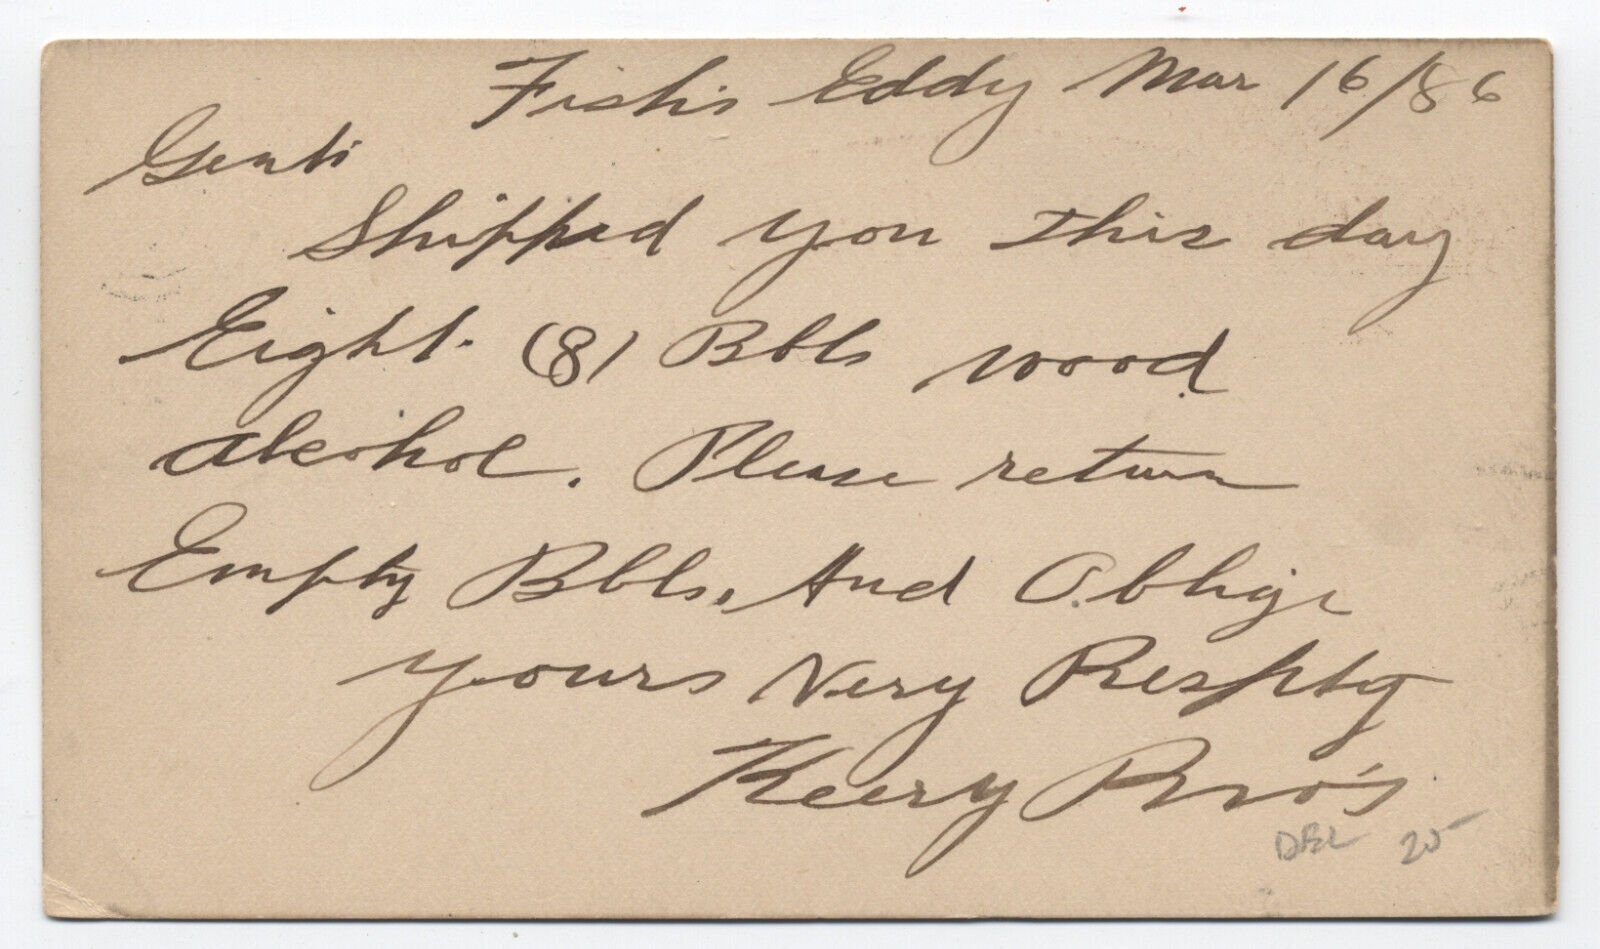 Fish's Eddy Mar 16/86
Gents
Shipped you this day
Eight. (8) Bbls wood
alcohol. Please return
Empty Bbls. And Oblige
yours Very Respty
Keery Bro's
DEL 25